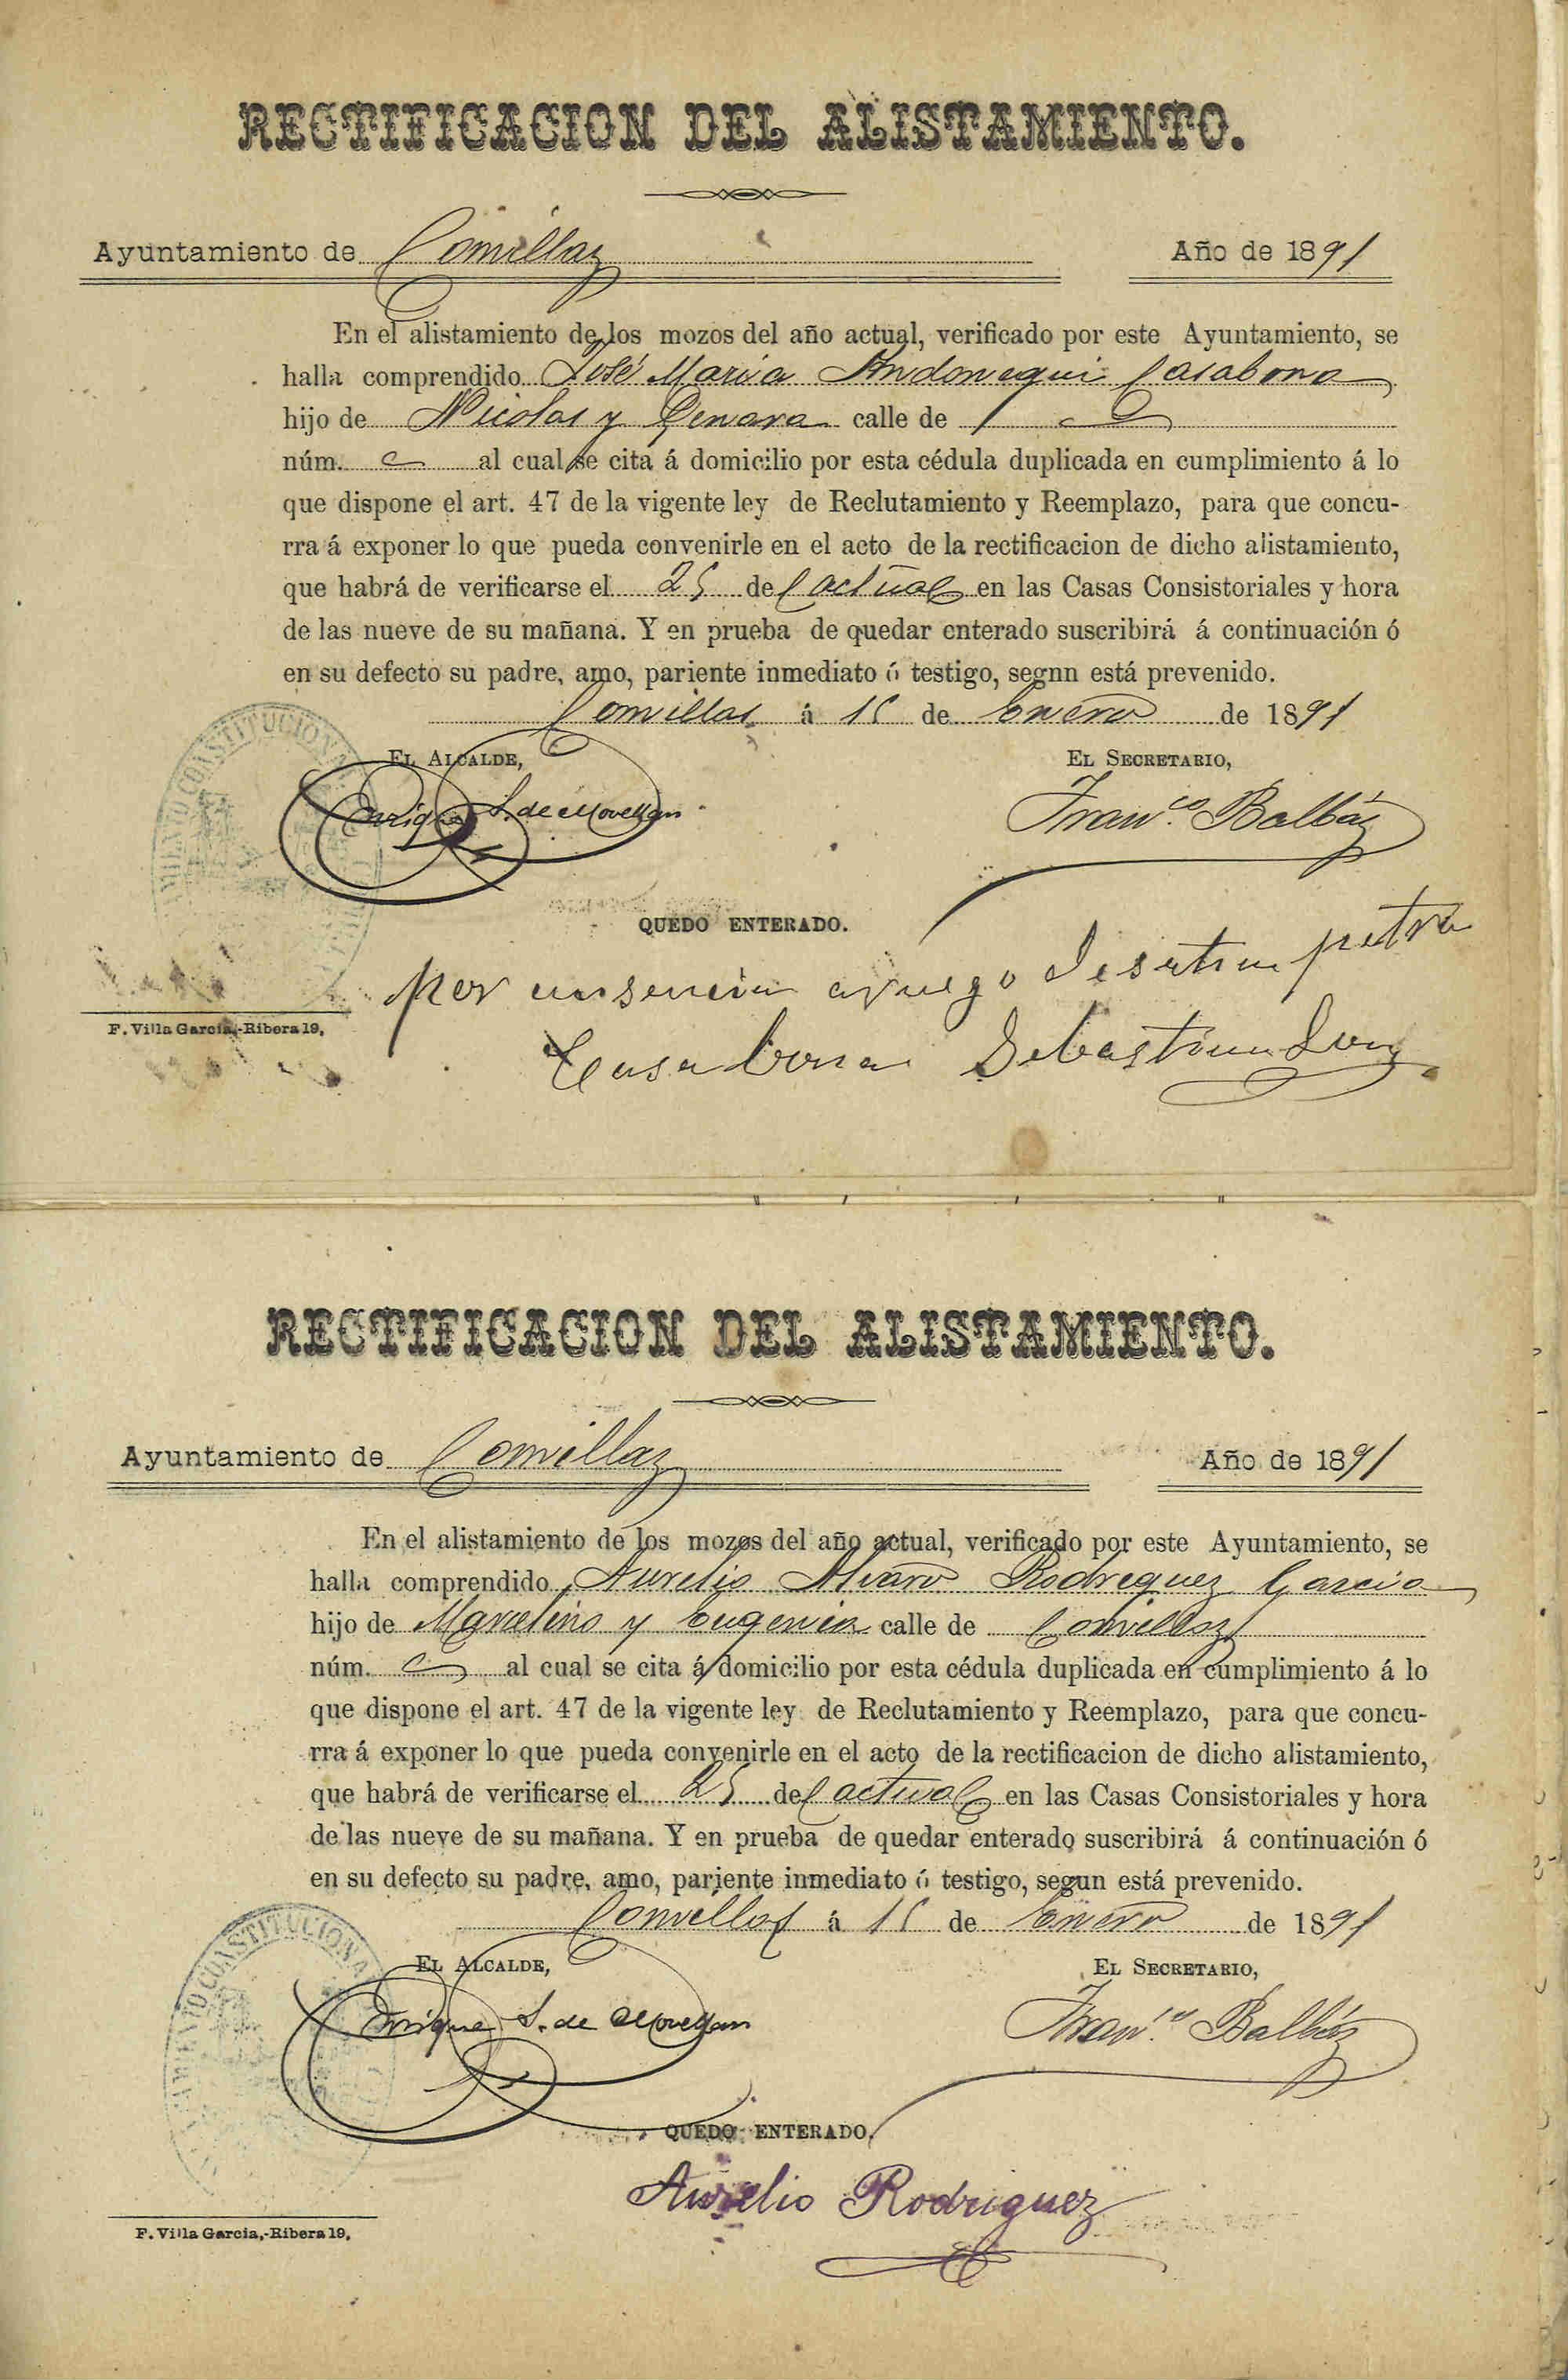 RECTIFICACION DEL ALISTAMIENTO.
Ayuntamiento de Comillas Año de 1891
En el alistamiento de los mozos del año actual, verificado por este Ayuntamiento, se
halla comprendido José Maria Andonegui Casabona
hijo de Nicolas y Genara calle de
núm. al cual se cita á domicilio por esta cédula duplicada en cumplimiento á lo
que dispone el art. 47 de la vigente ley de Reclutamiento y Reemplazo, para que concu-
rra á exponer lo que pueda convenirle en el acto de la rectificacion de dicho alistamiento,
que habrá de verificarse el 25 del actual en las Casas Consistoriales y hora
de las nueve de su mañana. Y en prueba de quedar enterado suscribirá á continuación ó
en su defecto su padre, amo, pariente inmediato ó testigo, segnn está prevenido.
Comillas á 15 de Enero de 1891
EL ALCALDE, EL SECRETARIO,
Enrique S. de Movellan Franco Balbás
QUEDO ENTERADO.
por ausencia a ruego de petra
Casabona Sebastian
F. Villa Garcia,-Ribera 19,
RECTIFICACION DEL ALISTAMIENTO.
Ayuntamiento de Comillas Año de 1891
En el alistamiento de los mozos del año actual, verificado por este Ayuntamiento, se
halla comprendido Aurelio Alvaro Rodreguez Garcia
hijo de Marcelino y Eugenia calle de Comillas
núm. al cual se cita á domicilio por esta cédula duplicada en cumplimiento á lo
que dispone el art. 47 de la vigente ley de Reclutamiento y Reemplazo, para que concu-
rra á exponer lo que pueda convenirle en el acto de la rectificacion de dicho alistamiento,
que habrá de verificarse el 25 del actual en las Casas Consistoriales y hora
de las nueve de su mañana. Y en prueba de quedar enterado suscribirá á continuación ó
en su defecto su padre, amo, pariente inmediato ó testigo, segun está prevenido.
Comillas á 15 de Enero de 1891
EL ALCALDE, EL SECRETARIO,
Enrique S. de Movellan Franco Balbás
QUEDO ENTERADO,
Aurelio Rodriguez
F. Villa Garcia,-Ribera 19,